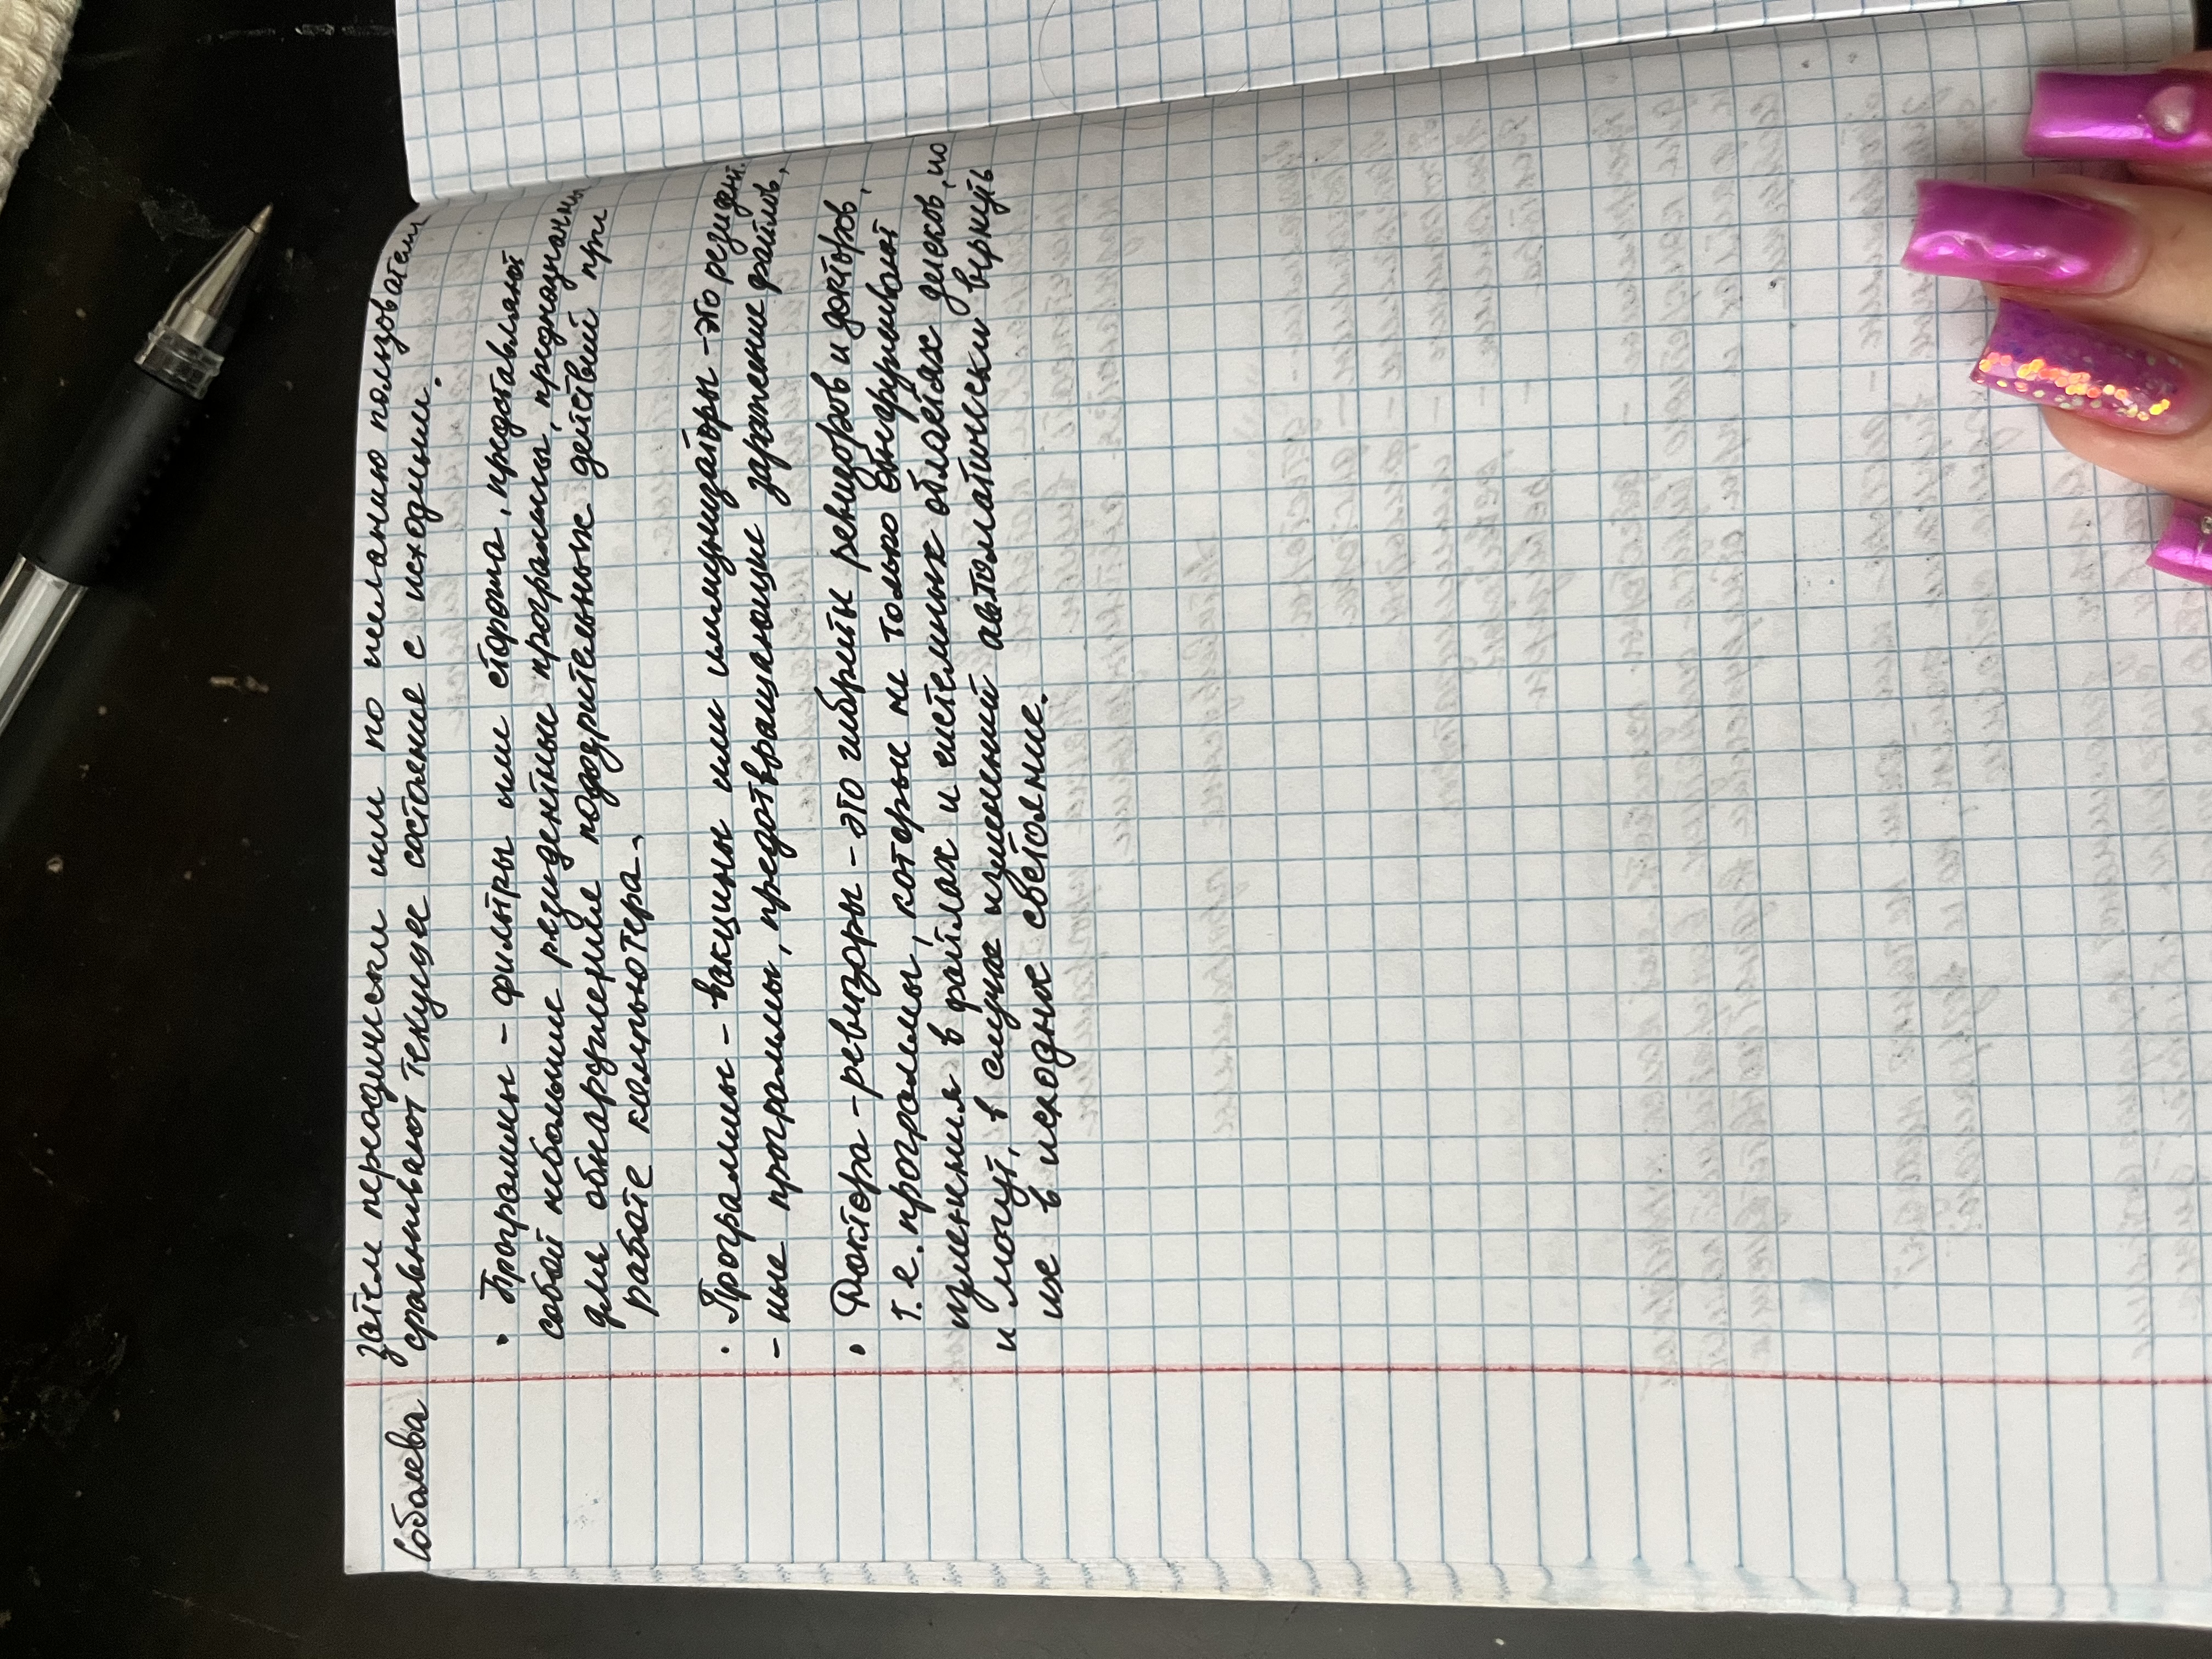 Соболева
затем периодически или по желанию пользователя
сравнивают текущее состояние с исходным.
• Программы - фильтры или сторожа, представляют
собой небольшие резидентные программы, предназначенные
для обнаружения подозрительных действий при
работе компьютера.
• Программы - вакцины или иммунизаторы - это резидент.
- ные программы, предотвращающие заражение файлов,
• Доктора - ревизоры - это гибриды ревизоров и докторов,
т.е. программы, которые не только обнаруживают
изменения в файлах и системных областях дисков, но
и могут, в случае изменений автоматически вернуть
их в исходное состояние.